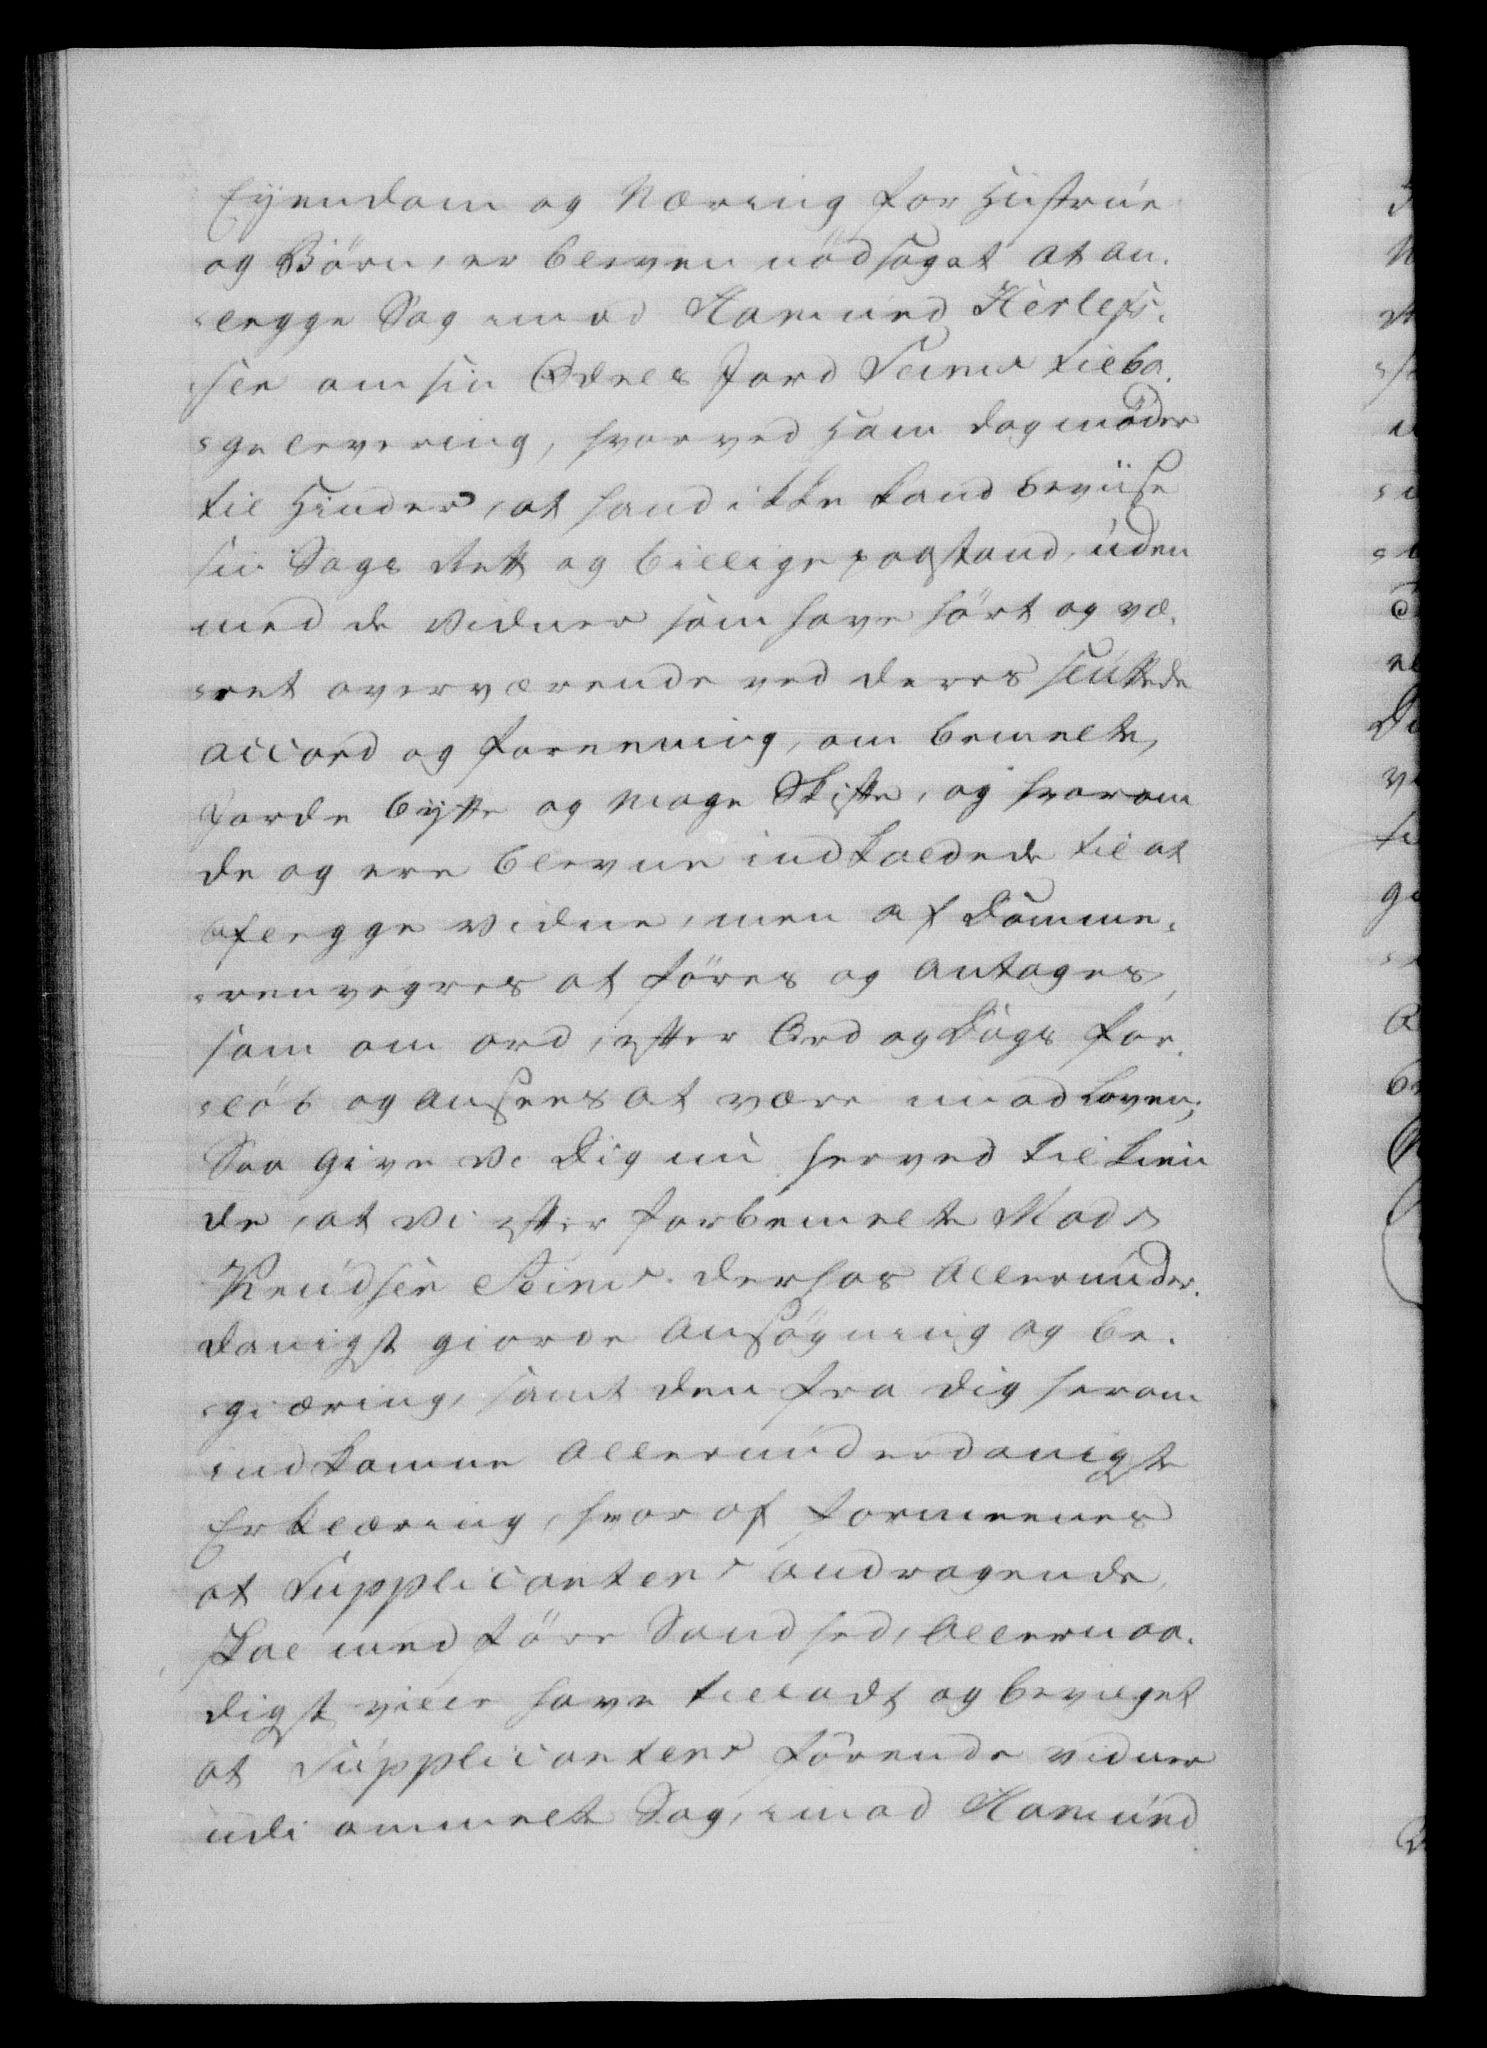 Eyendom og Næring for Hustrue
og Börn, er bleven nödsaget at an-
legge Sag imod Hamund Herlefs-
sen om sin Odels Jord Seims tilba-
gelevering, hvorved ham dog möder
til Hinder, at hand ikke kand beviise
sin Sags Rett og billige paastand, uden
med de Vidner som have hört og væ-
ret overværende ved deres sluttede
accord og foreening, om bemelte
Jorde bytte og Mage Skifte, og hvorom
de og ere blevne indkaldede til at
aflegge Vidne, men af Domme-
ren vegres at föres og antages,
som om ord, efter Ord og Dags for-
löb og ansees at være imod Loven;
Saa give Vi Dig nu herved til kien
de, at Vi efter forbemelte Mads
Knudsen Seims derhos allerunder-
danigst giorde Ansögning og be-
giæring, samt den fra dig herom
indkomne allerunderdanigste
Erklæring, hvoraf formeenes
at Supplicantens andragende,
skal medföre Sandhed, allernaa-
digst ville have tilladt og bevilget
at Supplicantens förende vidner
udi ommelte Sag, imod Hamund